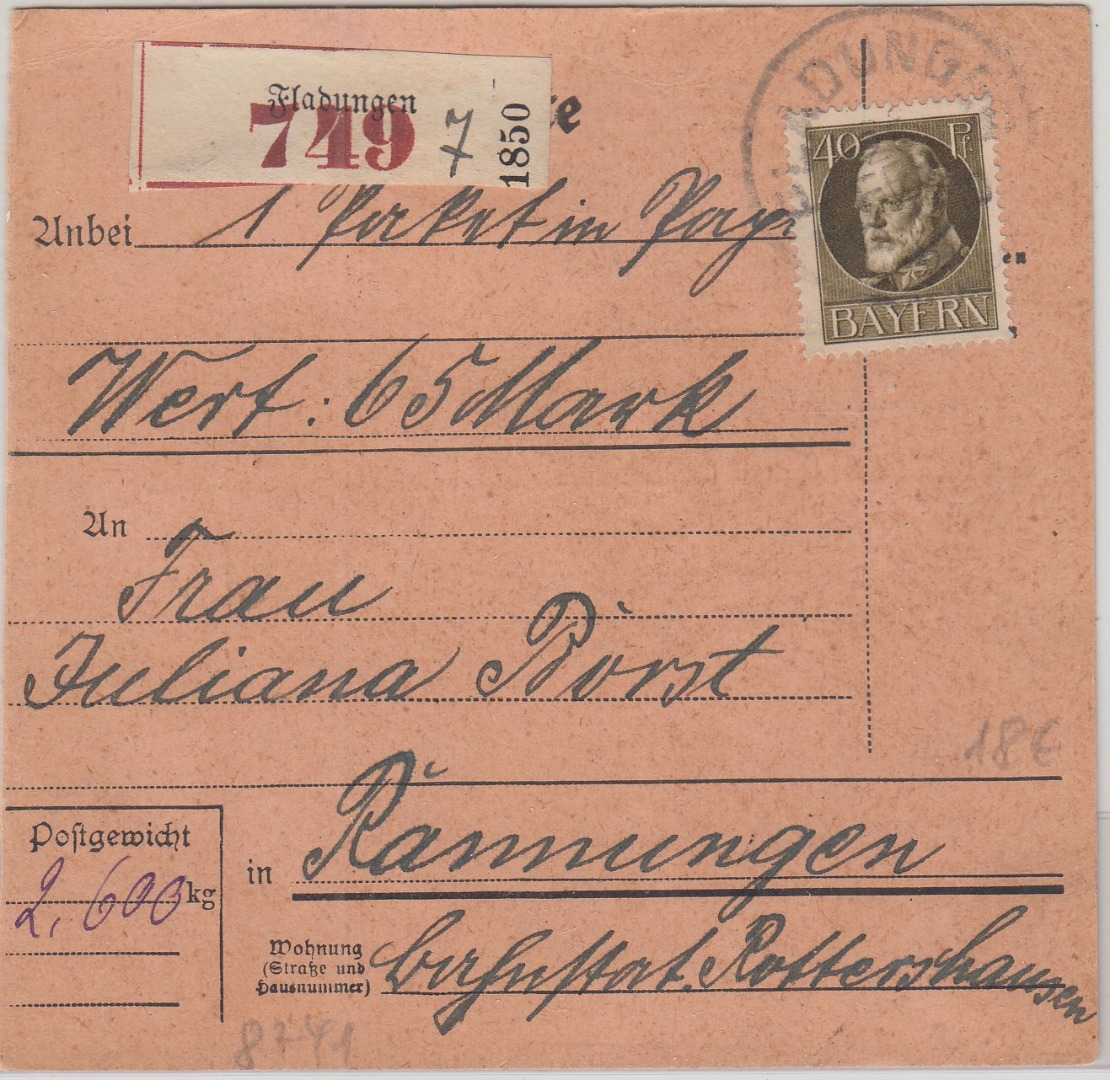 Fladungen
749
7
1850
te
FLADUNGEN
40 Pf.
BAYERN
Anbei 1 Paket in Pap
en
Wert: 65 Mark
An
Frau
Juliana Börst
18€
Postgewicht
2,600 kg
in Rannungen
Wohnung
(Straße und
Hausnummer)
Bahnstat. Rottershausen
8741